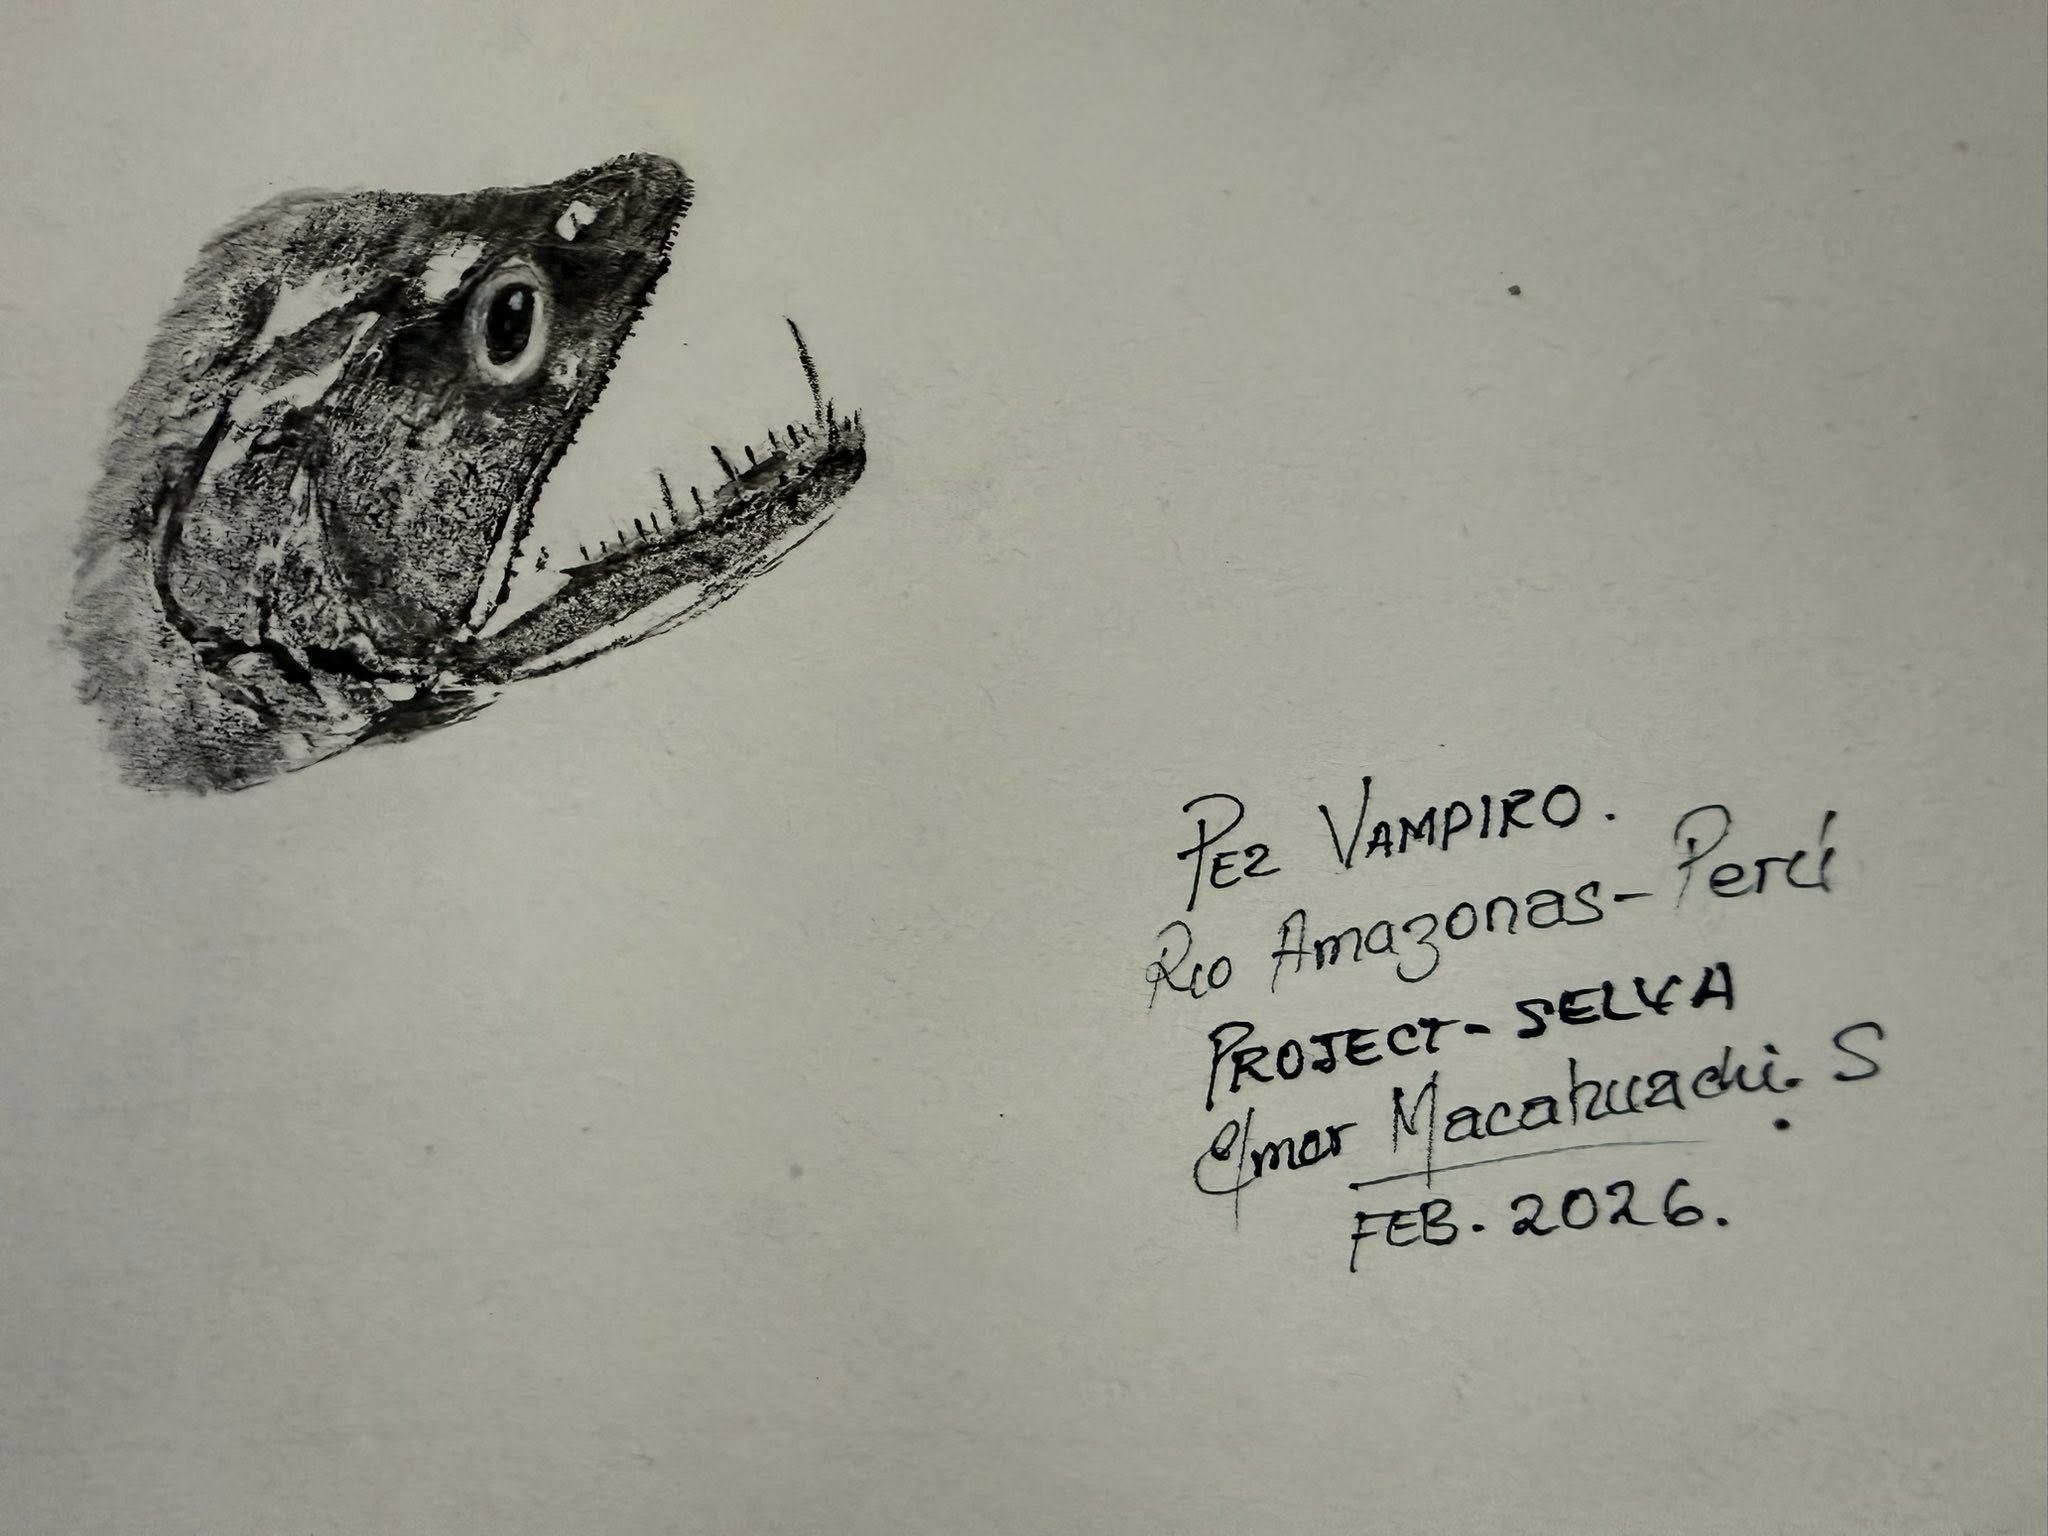 PEZ VAMPIRO.
Rio Amazonas - Perú
PROJECT - SELVA
Elmer Macahuachi. S
FEB. 2026.